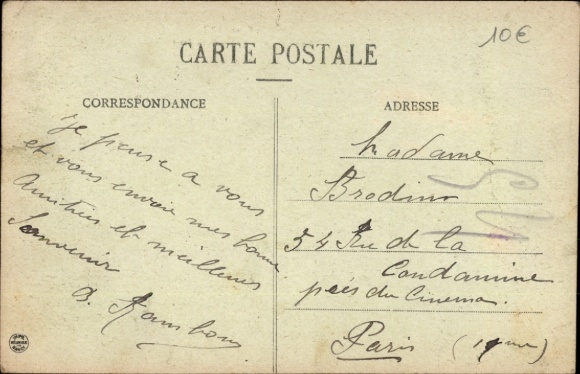 10€
CARTE POSTALE
CORRESPONDANCE
Je pense a vous
et vous envoie mes bonne
Amitiés et meilleurs
Souvenir
ADRESSE
Madame
54 Rue de la
Condamine
près du Cinema.
Paris